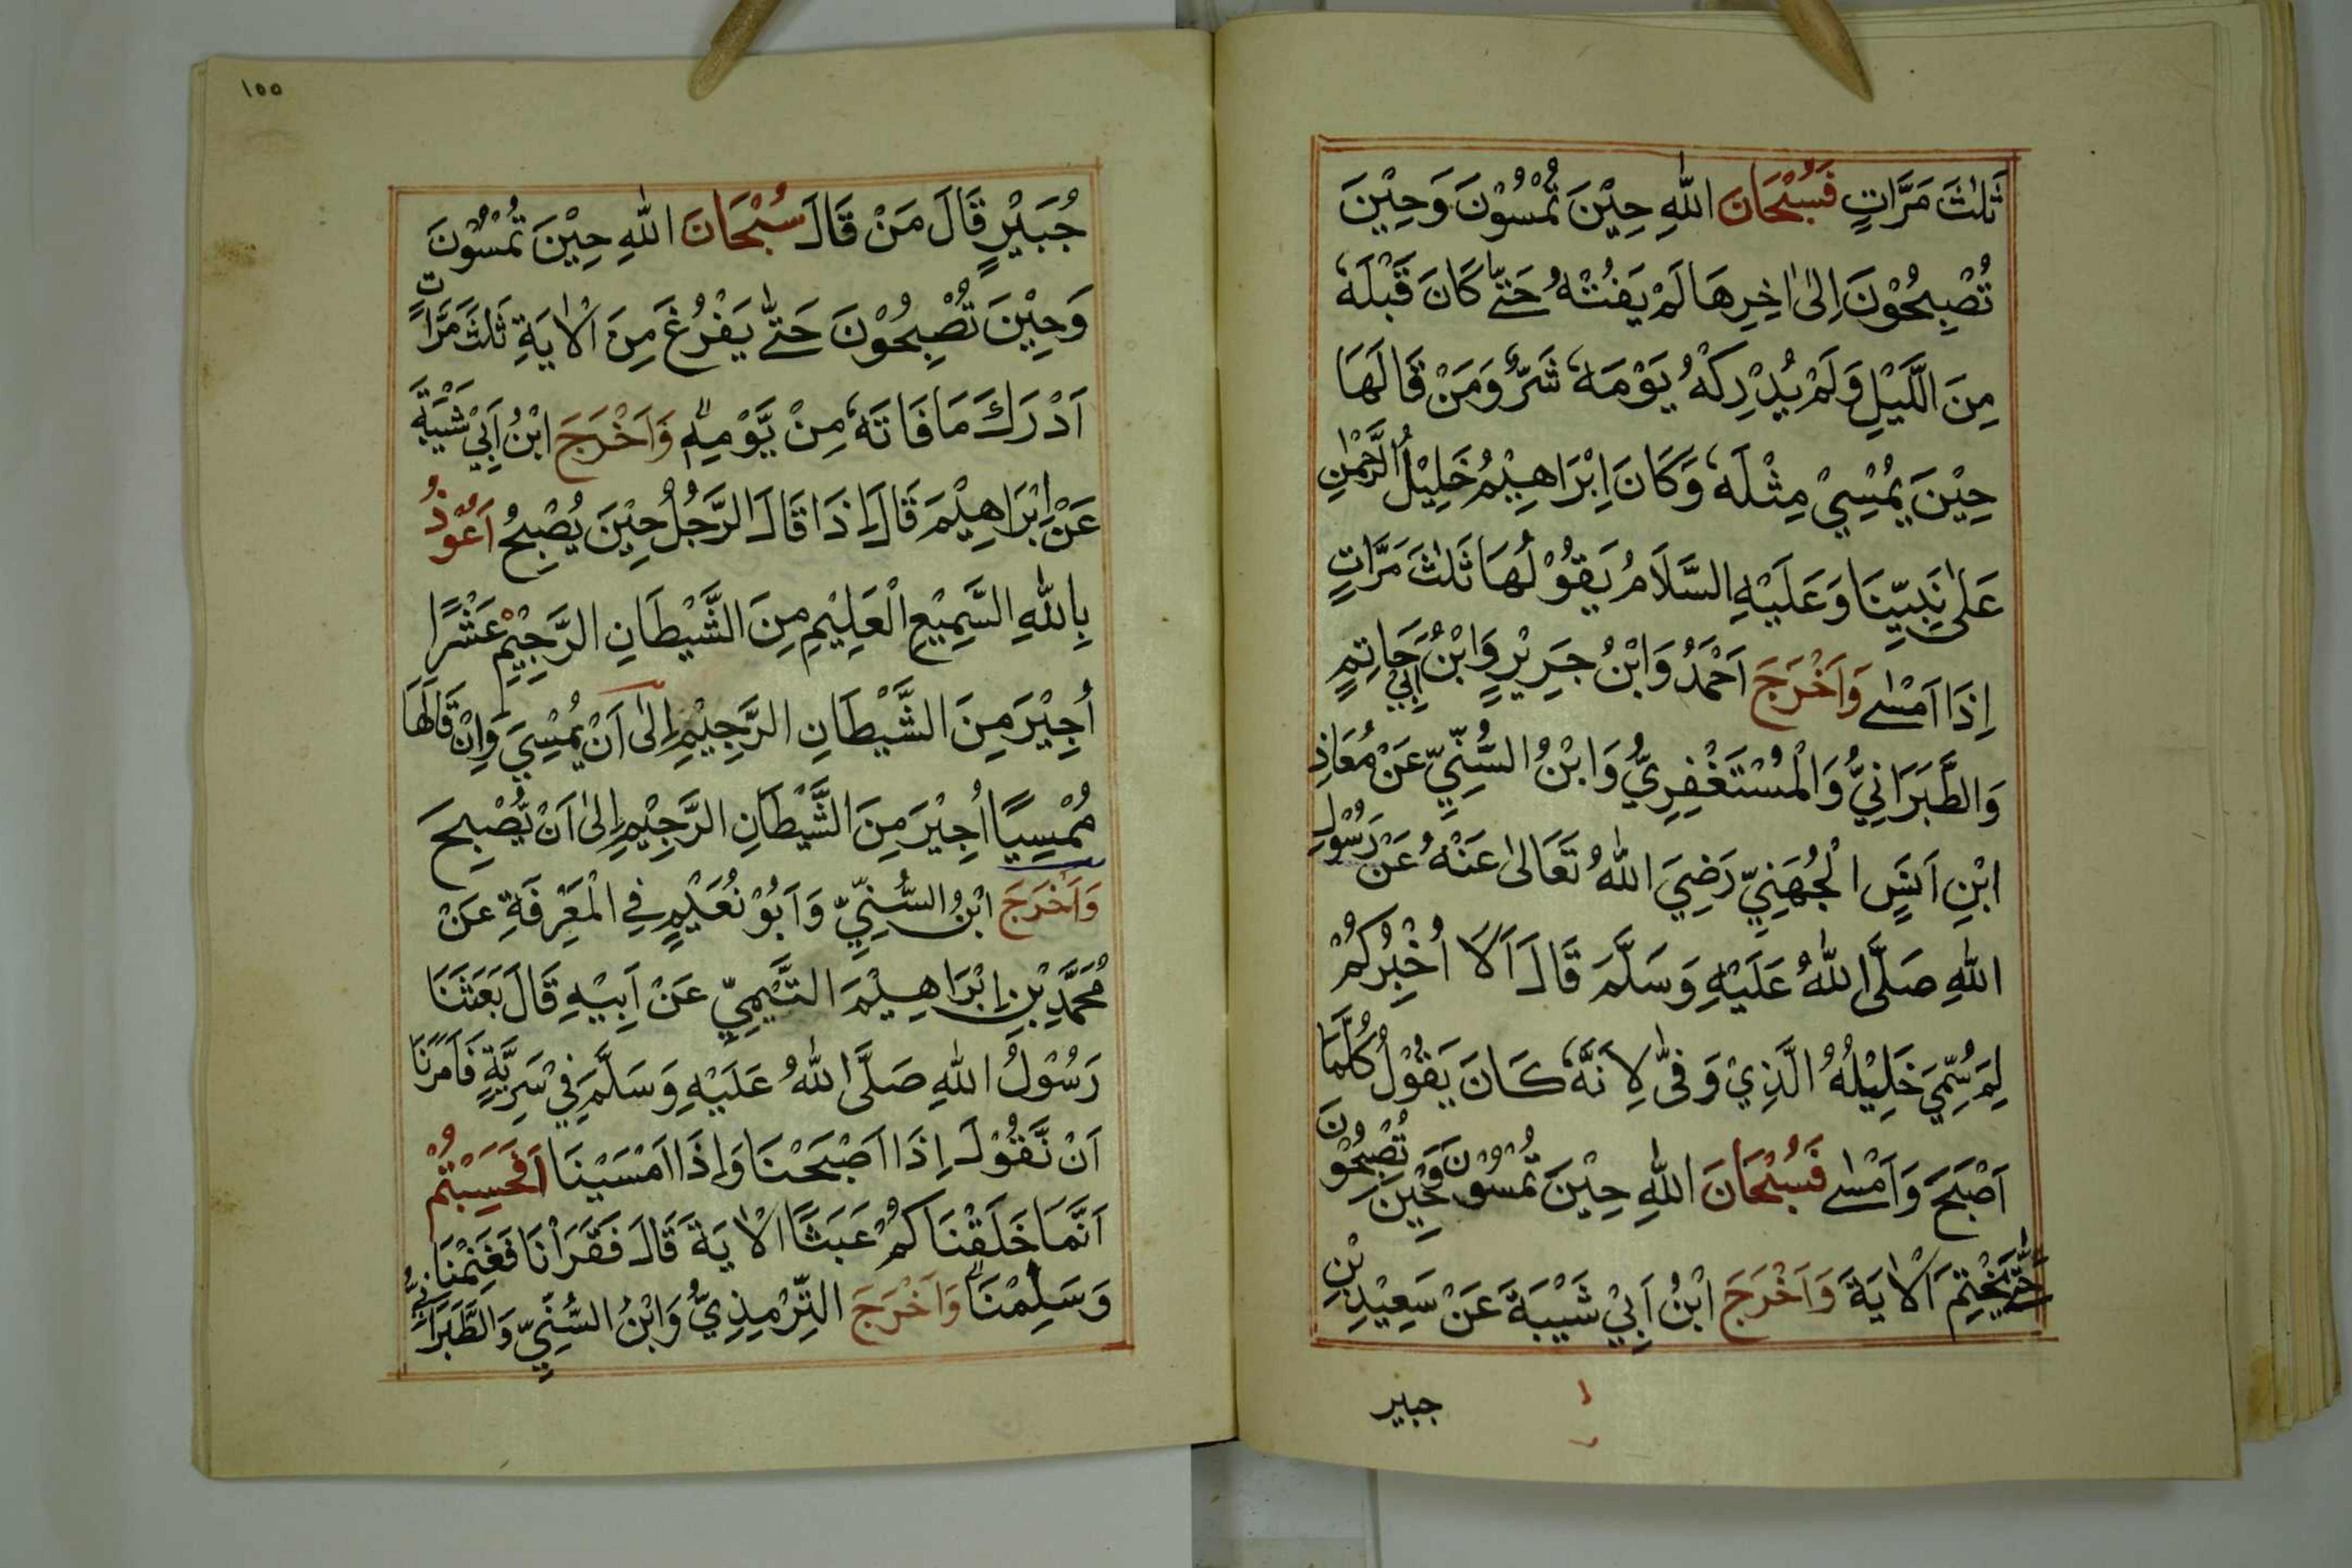 ثَلٰثَ مَرَّاتٍ فَسُبْحَانَ اللّٰهِ حِيْنَ تُمْسُوْنَ وَحِيْنَ
تُصْبِحُوْنَ اِلٰى اٰخِرِهَا لَمْ يَفُتْهُ حَتّٰى كَانَ قَبْلَهٗ
مِنَ اللَّيْلِ وَلَمْ يُدْرِكْهُ يَوْمَهٗ شَرٌّ وَمَنْ قَالَهَا
حِيْنَ يُمْسِيْ مِثْلَهٗ وَكَانَ اِبْرَاهِيْمُ خَلِيْلُ الرَّحْمٰنِ
عَلٰى نَبِيِّنَا وَعَلَيْهِ السَّلَامُ يَقُوْلُهَا ثَلٰثَ مَرَّاتٍ
اِذَا اَمْسٰى وَاَخْرَجَ اَحْمَدُ وَابْنُ جَرِيْرٍ وَابْنُ اَبِيْ حَاتِمٍ
وَالطَّبَرَانِيُّ وَالْمُسْتَغْفِرِيُّ وَابْنُ السُّنِّيِّ عَنْ مُعَاذِ
ابْنِ اَنَسٍ الْجُهَنِيِّ رَضِيَ اللّٰهُ تَعَالٰى عَنْهُ عَنْ رَسُوْلِ
اللّٰهِ صَلَّى اللّٰهُ عَلَيْهِ وَسَلَّمَ قَالَ اَلَا اُخْبِرُكُمْ
لِمَ سُمِّيَ خَلِيْلُهُ الَّذِيْ وَفّٰى لِاَنَّهٗ كَانَ يَقُوْلُ كُلَّمَا
اَصْبَحَ وَاَمْسٰى فَسُبْحَانَ اللّٰهِ حِيْنَ تُمْسُوْنَ وَحِيْنَ تُصْبِحُوْنَ
حَتّٰى يَخْتِمَ الْاٰيَةَ وَاَخْرَجَ ابْنُ اَبِيْ شَيْبَةَ عَنْ سَعِيْدِ بْنِ
جبير
١٥٥
جُبَيْرٍ قَالَ مَنْ قَالَ سُبْحَانَ اللّٰهِ حِيْنَ تُمْسُوْنَ
وَحِيْنَ تُصْبِحُوْنَ حَتّٰى يَفْرُغَ مِنَ الْاٰيَةِ ثَلٰثَ مَرَّاتٍ
اَدْرَكَ مَا فَاتَهٗ مِنْ يَّوْمِهٖ وَاَخْرَجَ ابْنُ اَبِيْ شَيْبَةَ
عَنْ اِبْرَاهِيْمَ قَالَ اِذَا قَالَ الرَّجُلُ حِيْنَ يُصْبِحُ اَعُوْذُ
بِاللّٰهِ السَّمِيْعِ الْعَلِيْمِ مِنَ الشَّيْطَانِ الرَّجِيْمِ عَشْرًا
اُجِيْرَ مِنَ الشَّيْطَانِ الرَّجِيْمِ اِلٰى اَنْ يُمْسِيَ وَاِنْ قَالَهَا
مُمْسِيًا اُجِيْرَ مِنَ الشَّيْطَانِ الرَّجِيْمِ اِلٰى اَنْ يُّصْبِحَ
وَاَخْرَجَ ابْنُ السُّنِّيِّ وَاَبُوْ نُعَيْمٍ فِي الْمَعْرِفَةِ عَنْ
مُحَمَّدِ بْنِ اِبْرَاهِيْمَ التَّيْمِيِّ عَنْ اَبِيْهِ قَالَ بَعَثَنَا
رَسُوْلُ اللّٰهِ صَلَّى اللّٰهُ عَلَيْهِ وَسَلَّمَ فِيْ سَرِيَّةٍ فَاَمَرَنَا
اَنْ نَّقُوْلَ اِذَا اَصْبَحْنَا وَاِذَا اَمْسَيْنَا اَفَحَسِبْتُمْ
اَنَّمَا خَلَقْنَاكُمْ عَبَثًا الْاٰيَةَ قَالَ فَقَرَأْنَا فَغَنِمْنَا
وَسَلِمْنَا وَاَخْرَجَ التِّرْمِذِيُّ وَابْنُ السُّنِّيِّ وَالطَّبَرَانِيُّ